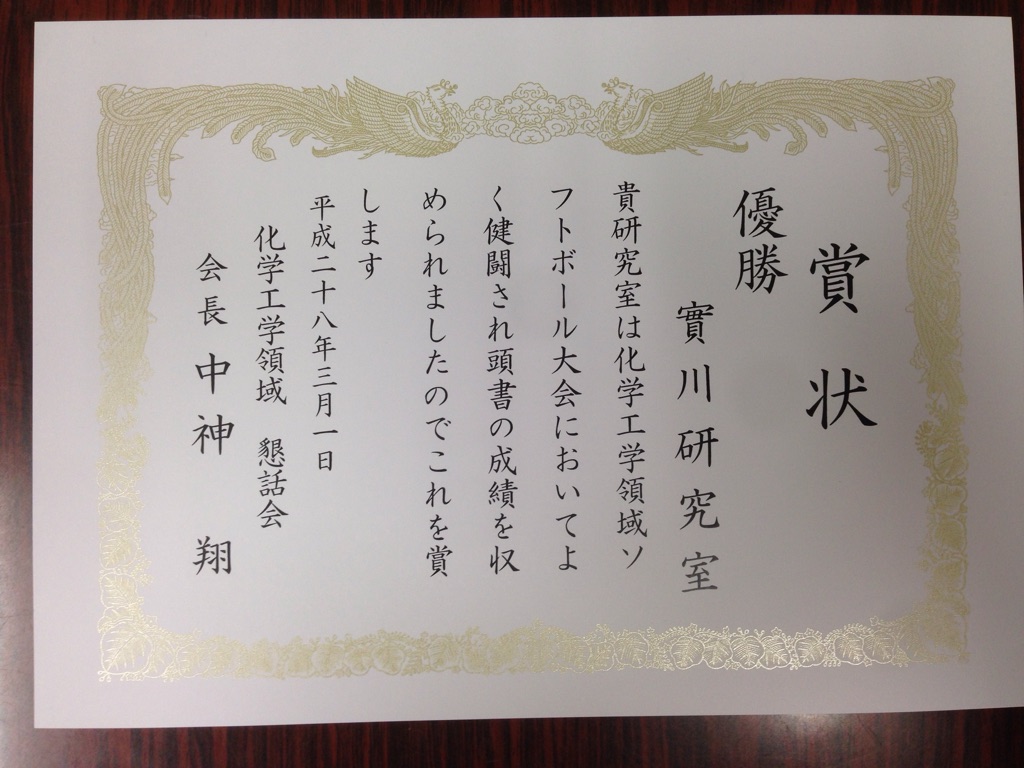 賞状
優勝
實川研究室
貴研究室は化学工学領域ソ
フトボール大会においてよ
く健闘され頭書の成績を収
められましたのでこれを賞
します
平成二十八年三月一日
化学工学領域 懇話会
会長 中神 翔